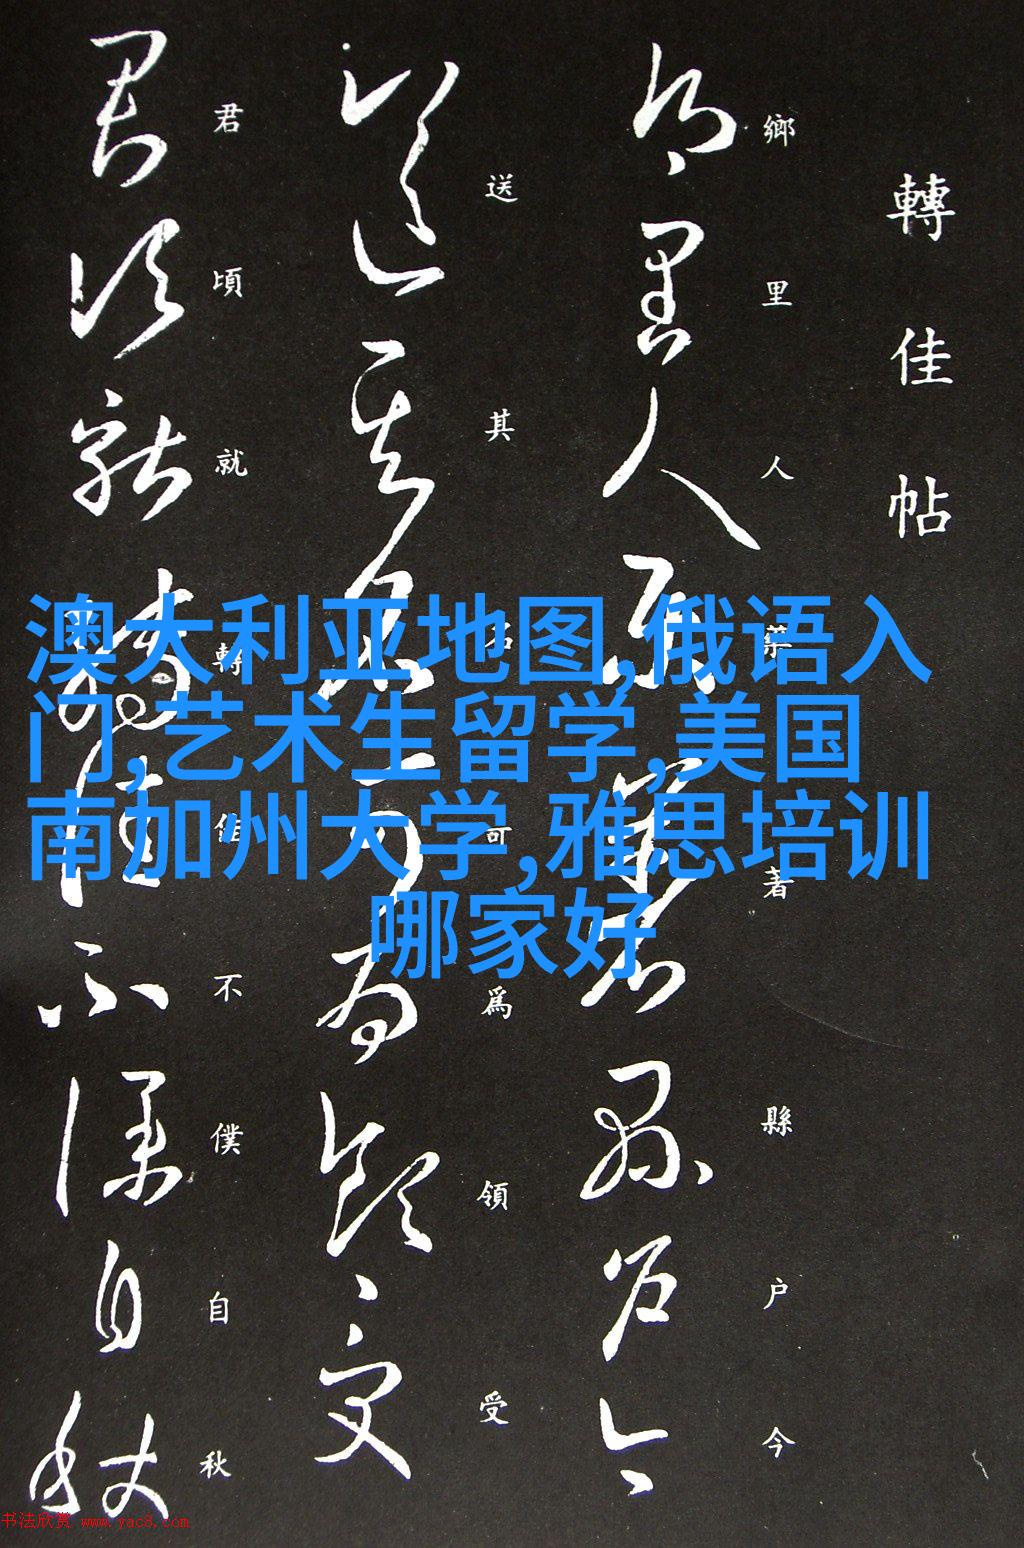 轉佳帖
鄉里人藥著縣户今
送其名可爲領受
君頃就轉佳不僕自秋
澳大利亚地图,俄语入
门,艺术生留学,美国
南加州大学,雅思培训
哪家好
书法欣赏 www.yac8.com